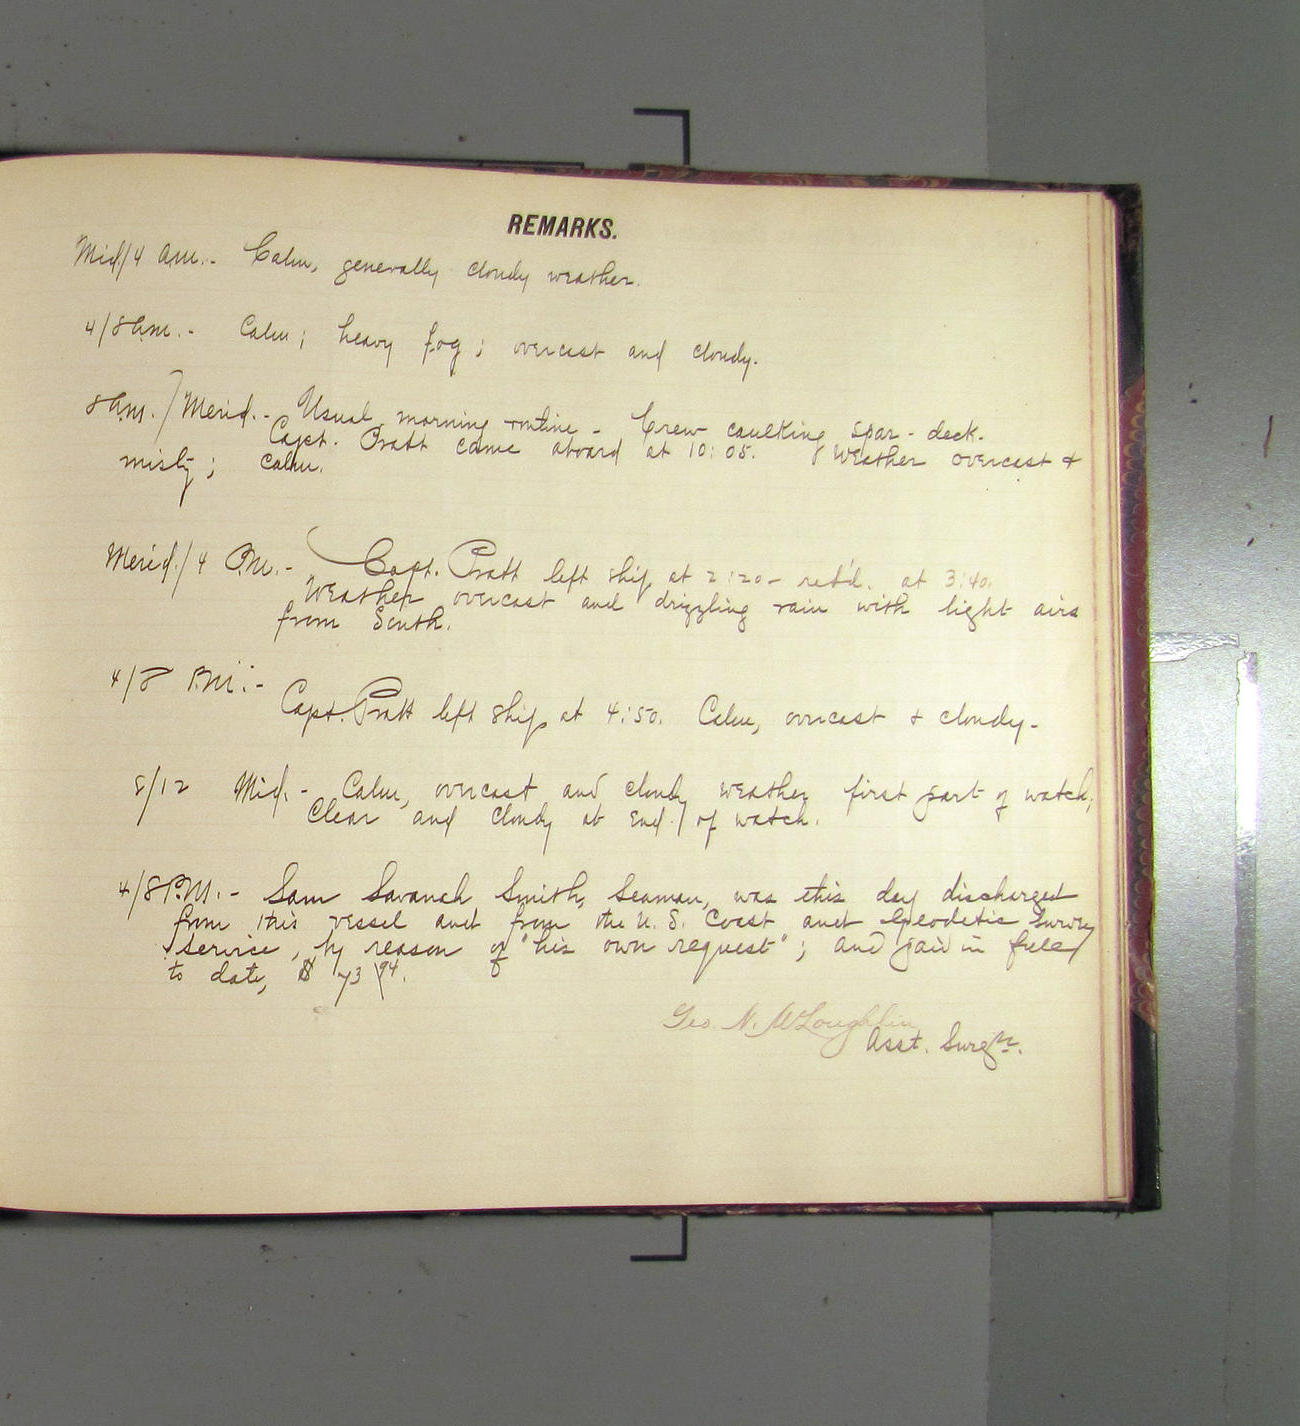 REMARKS.
Mid/4 am.- Calm, generally cloudy weather.
4/8 am.- Calm; heavy fog; overcast and cloudy.
8 am./Merid.- Usual morning routine - Crew caulking spar-deck.
Capt. Pratt came aboard at 10:05. Weather overcast &
misty; calm.
Merid./4 P.M.- Capt. Pratt left ship at 2:20 - ret'd. at 3:40.
Weather overcast and drizzling rain with light airs
from South.
4/8 P.M.-
Capt. Pratt left ship at 4:50. Calm, overcast & cloudy -
8/12 Mid.- Calm, overcast and cloudy weather first part of watch;
Clear and cloudy at end of watch.
4/8 P.M.- Sam Savanah Smith, Seaman, was this day discharged
from this vessel and from the U.S. Coast and Geodetic Survey
Service, by reason of "his own request"; and paid in full
to date, $ 73 94.
Geo. N. McLoughlin
Asst. Surgn.